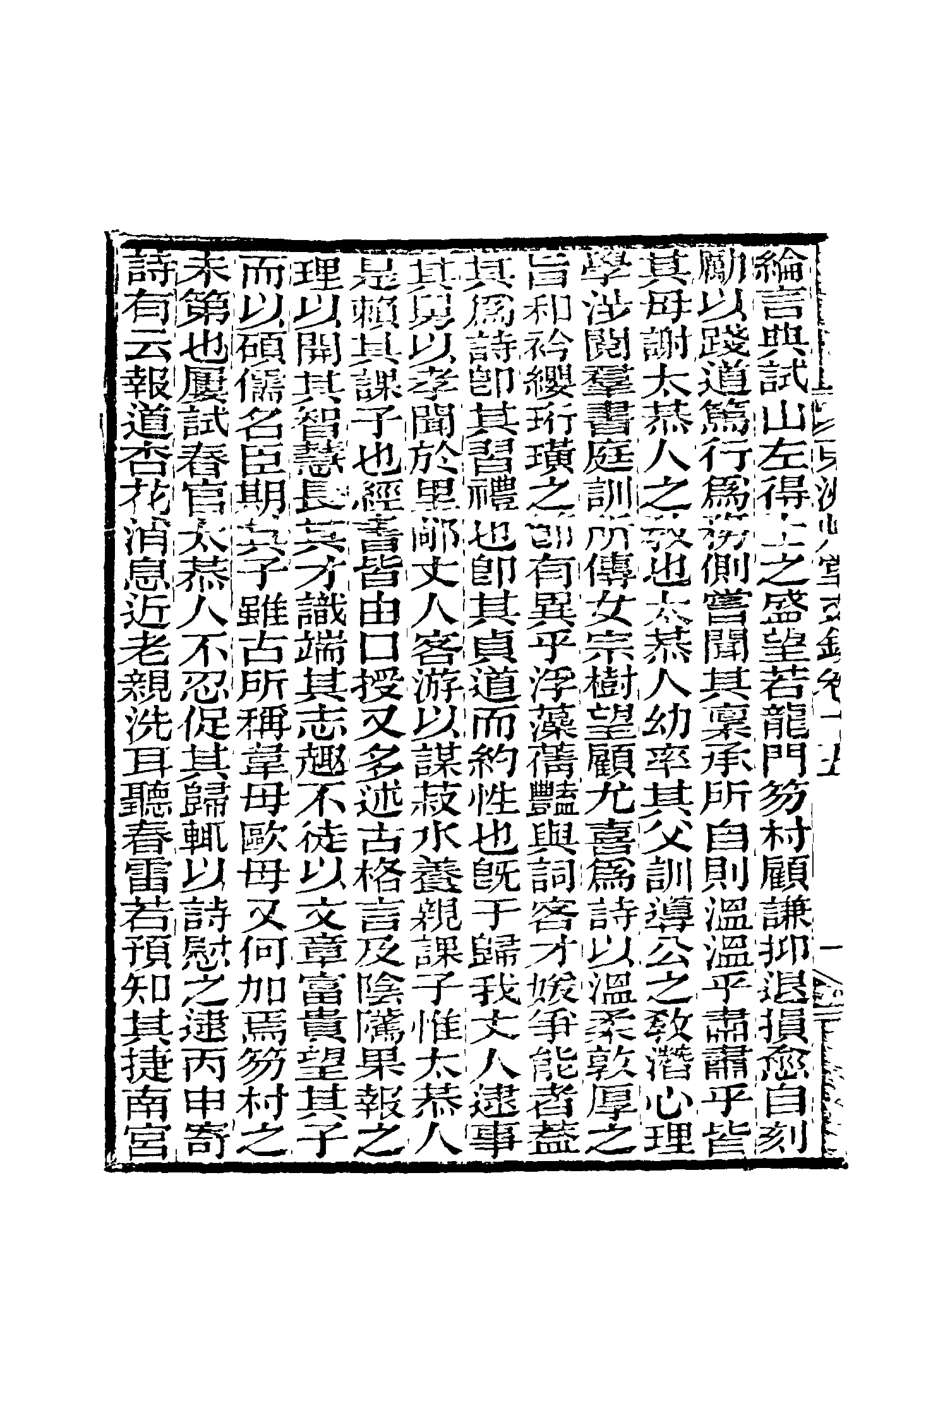 綸言典試山左得士之盛望若龍門笏村顧謙抑退損愈自刻
勵以踐道篤行爲務側嘗聞其稟承所自則溫溫乎肅肅乎皆
其母謝太恭人之教也太恭人幼率其父訓導公之教潛心理
學涉閱羣書庭訓所傳女宗樹望顧尤喜爲詩以溫柔敦厚之
旨和衿纓珩璜之節有異乎浮藻蒨豔與詞客才媛爭能者葢
其爲詩卽其習禮也卽其貞道而約性也旣于歸我丈人逮事
其舅以孝聞於里鄰丈人客游以謀菽水養親課子惟太恭人
是賴其課子也經書皆由口授又多述古格言及陰隲果報之
理以開其智慧長其才識端其志趣不徒以文章富貴望其子
而以碩儒名臣期其子雖古所稱韋母歐母又何加焉笏村之
未第也屢試春官太恭人不忍促其歸輒以詩慰之逮丙申寄
詩有云報道杏花消息近老親洗耳聽春雷若預知其捷南宮